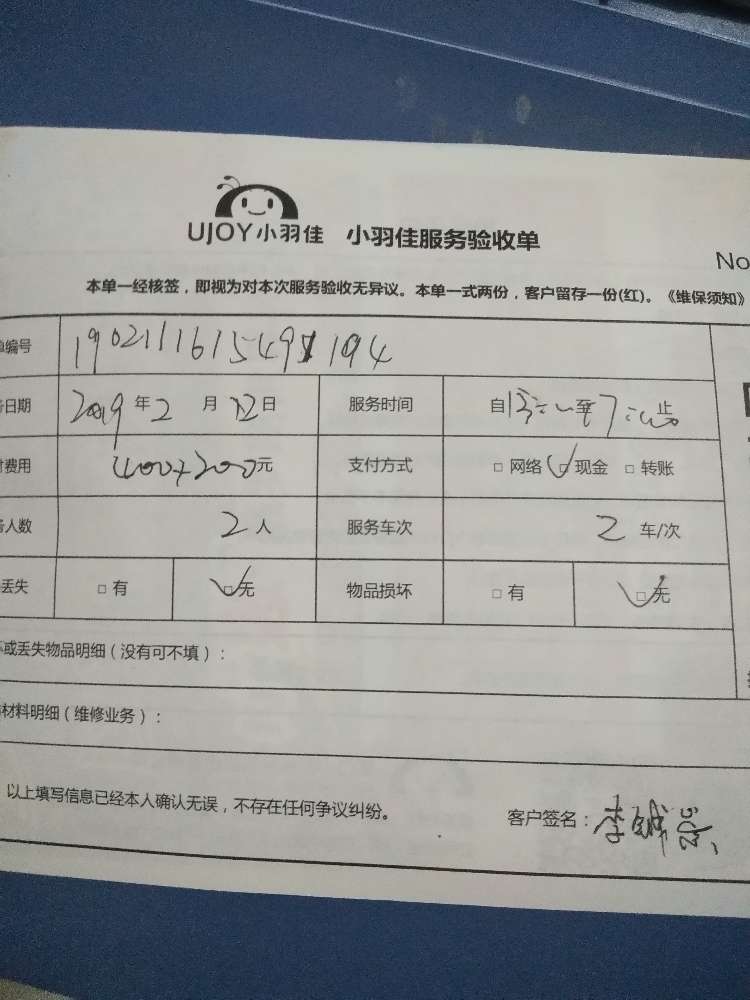 UJOY小羽佳 小羽佳服务验收单
No
本单一经核签，即视为对本次服务验收无异议。本单一式两份，客户留存一份(红)。《维保须知》
单编号
日期 2019 年 2 月 12 日 服务时间 自 至 止
费用 400+200元 支付方式 □ 网络 □ 现金 □ 转账
人数 2 人 服务车次 2 车/次
丢失 □ 有 □ 无 物品损坏 □ 有 □ 无
或丢失物品明细（没有可不填）：
材料明细（维修业务）：
以上填写信息已经本人确认无误，不存在任何争议纠纷。
客户签名：李